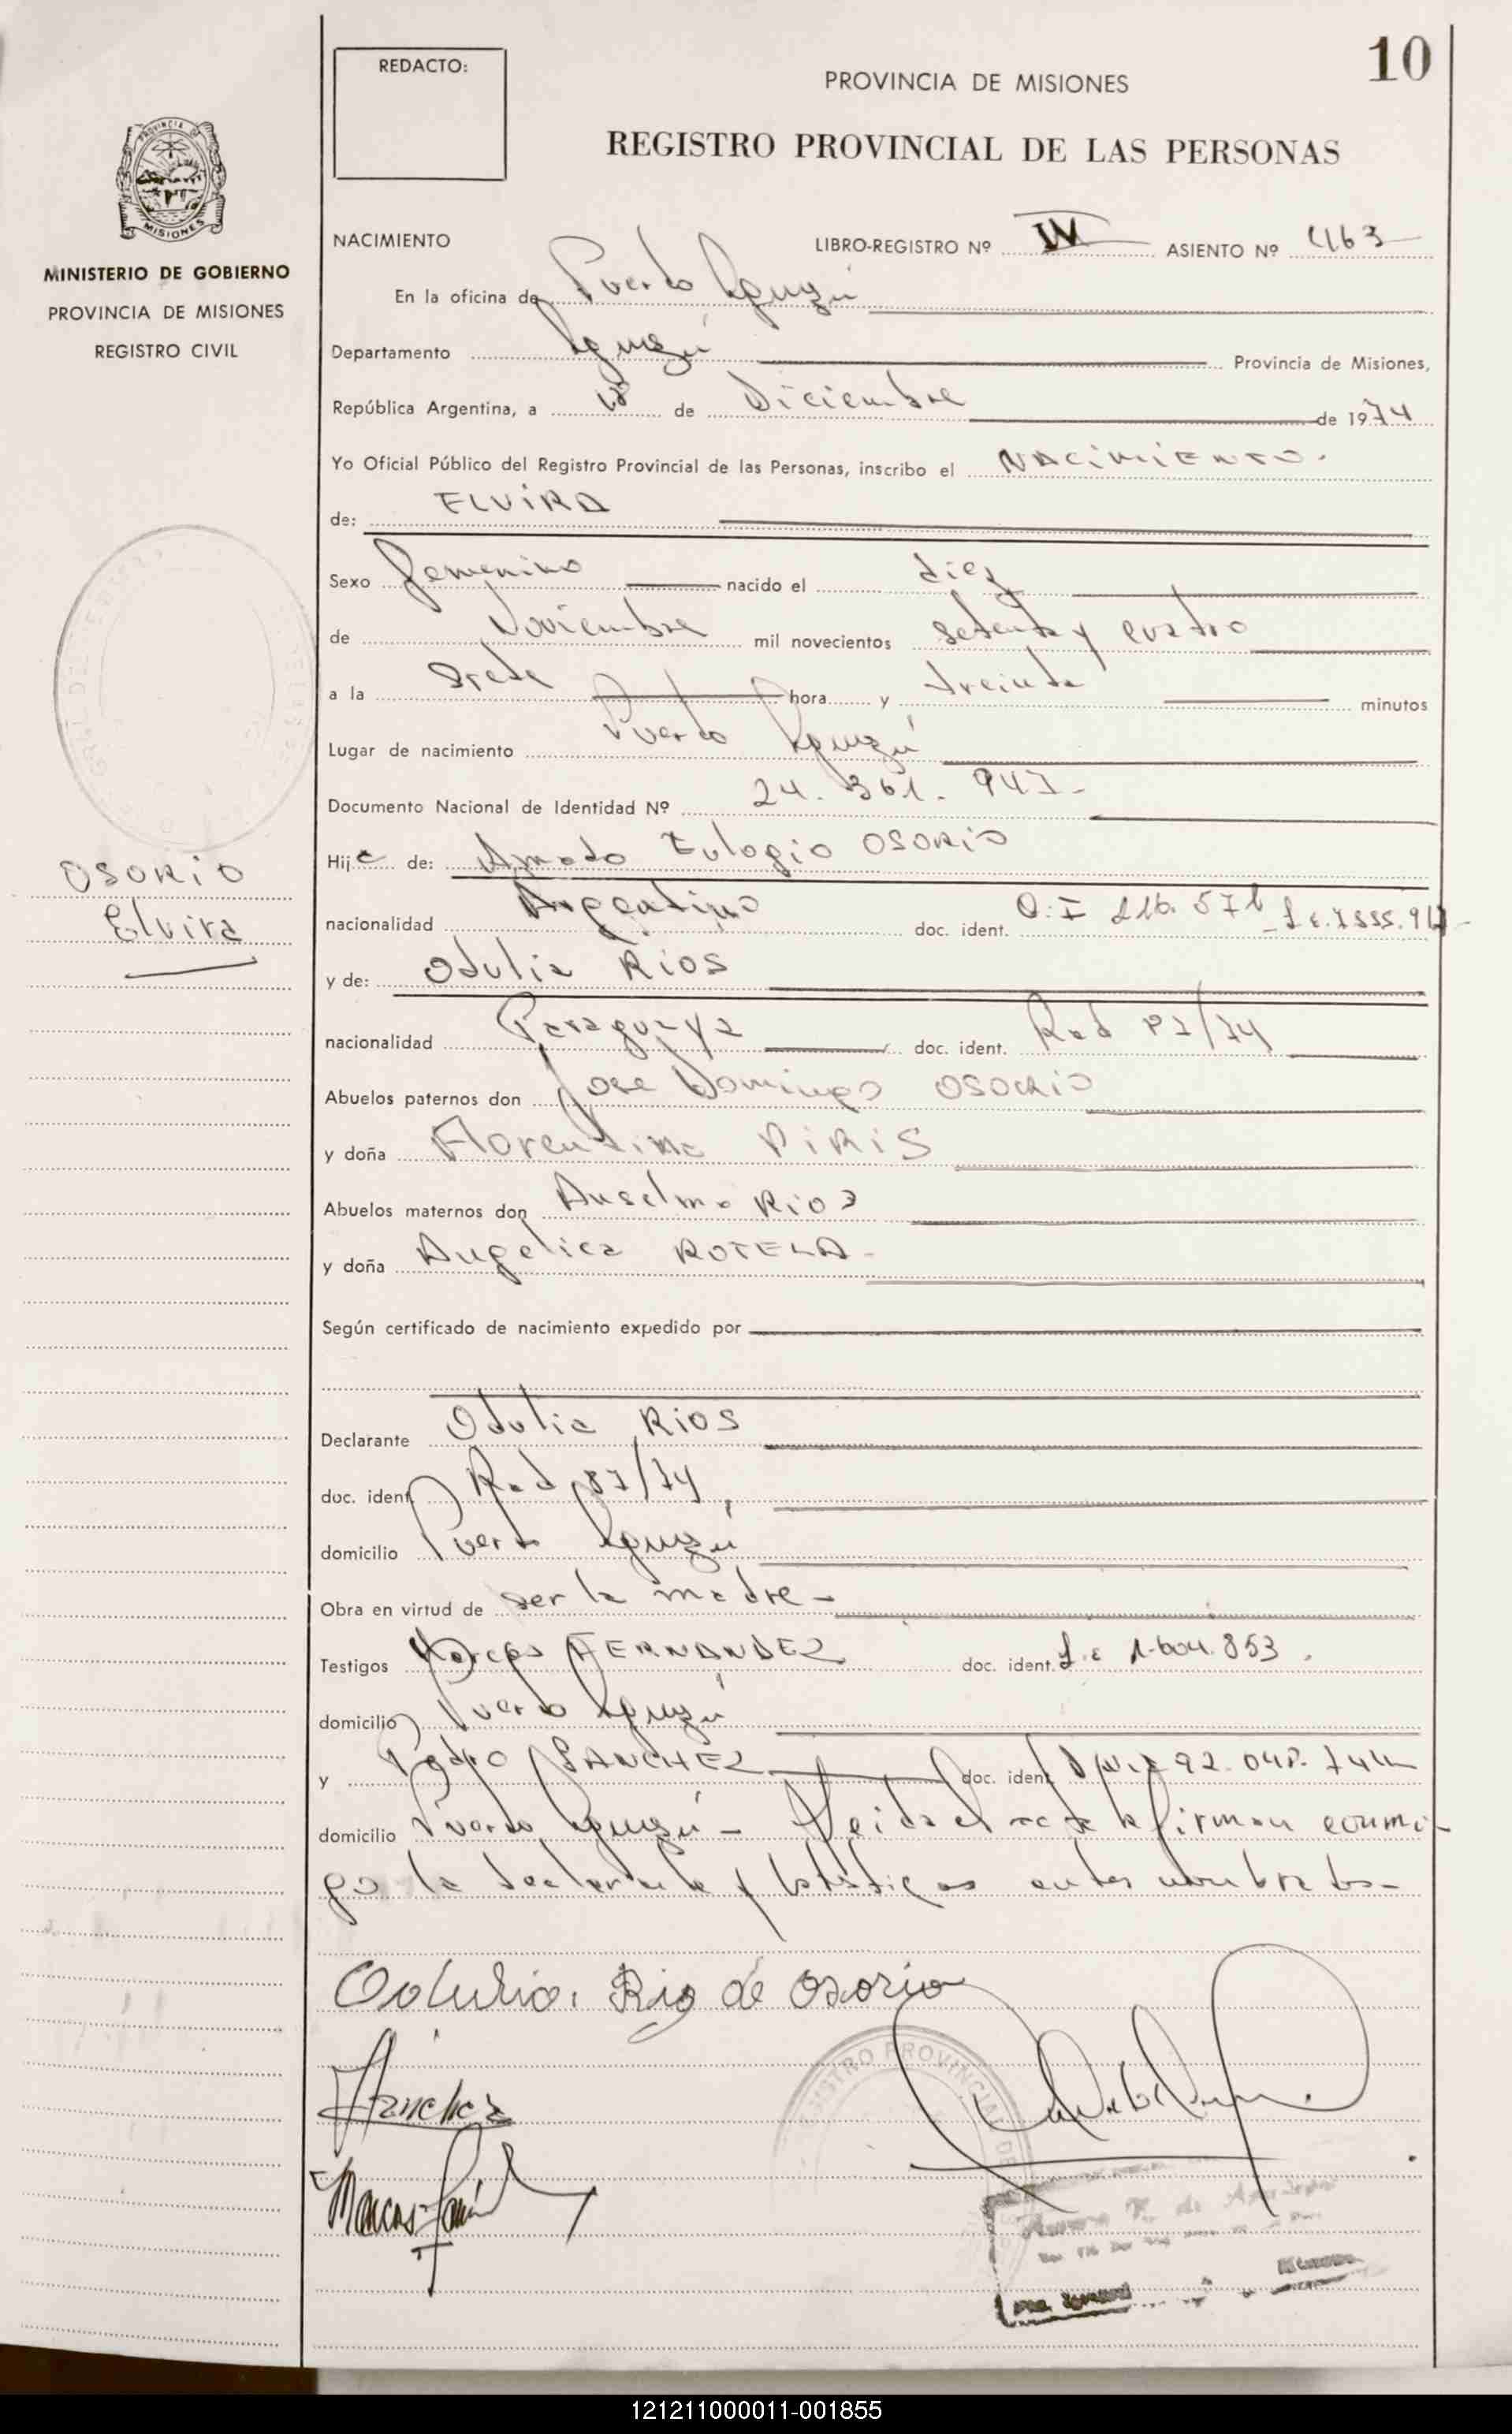 10
REDACTO:
PROVINCIA DE MISIONES
REGISTRO PROVINCIAL DE LAS PERSONAS
PROVINCIA DE
MISIONES
MINISTERIO DE GOBIERNO
PROVINCIA DE MISIONES
REGISTRO CIVIL
OSORIO
Elvira
NACIMIENTO LIBRO-REGISTRO Nº IV ASIENTO Nº 463
En la oficina de Puerto Iguazú
Departamento Iguazú Provincia de Misiones,
República Argentina, a 18 de Diciembre de 1974
Yo Oficial Público del Registro Provincial de las Personas, inscribo el NACIMIENTO.
de: ELVIRA
Sexo Femenino nacido el diez
de Noviembre mil novecientos setenta y cuatro
a la siete hora y treinta minutos
Lugar de nacimiento Puerto Iguazú
Documento Nacional de Identidad Nº 24.361.947-
Hija de: Amado Eulogio OSORIO
nacionalidad Argentino doc. ident.
y de: Odulia RIOS
nacionalidad Paraguaya doc. ident. Rad 87/74
Abuelos paternos don Jose Domingo OSORIO
y doña Florentina PIRIS
Abuelos maternos don Anselmo RIOS
y doña Angelica ROTELA-
Según certificado de nacimiento expedido por
Declarante Odulia RIOS
doc. ident. Rad 87/74
domicilio Puerto Iguazú
Obra en virtud de ser la madre-
Testigos Marcos FERNANDEZ doc. ident. L.E 1.604.853.
domicilio Puerto Iguazú
y Pedro SANCHEZ doc. ident.
domicilio Puerto Iguazú - Leida el acta la firman conmi-
go la declarante y los testigos antes nombrados-
Odulia Rios de Osorio
Sanchez
Marcos
REGISTRO PROVINCIAL DE
121211000011-001855